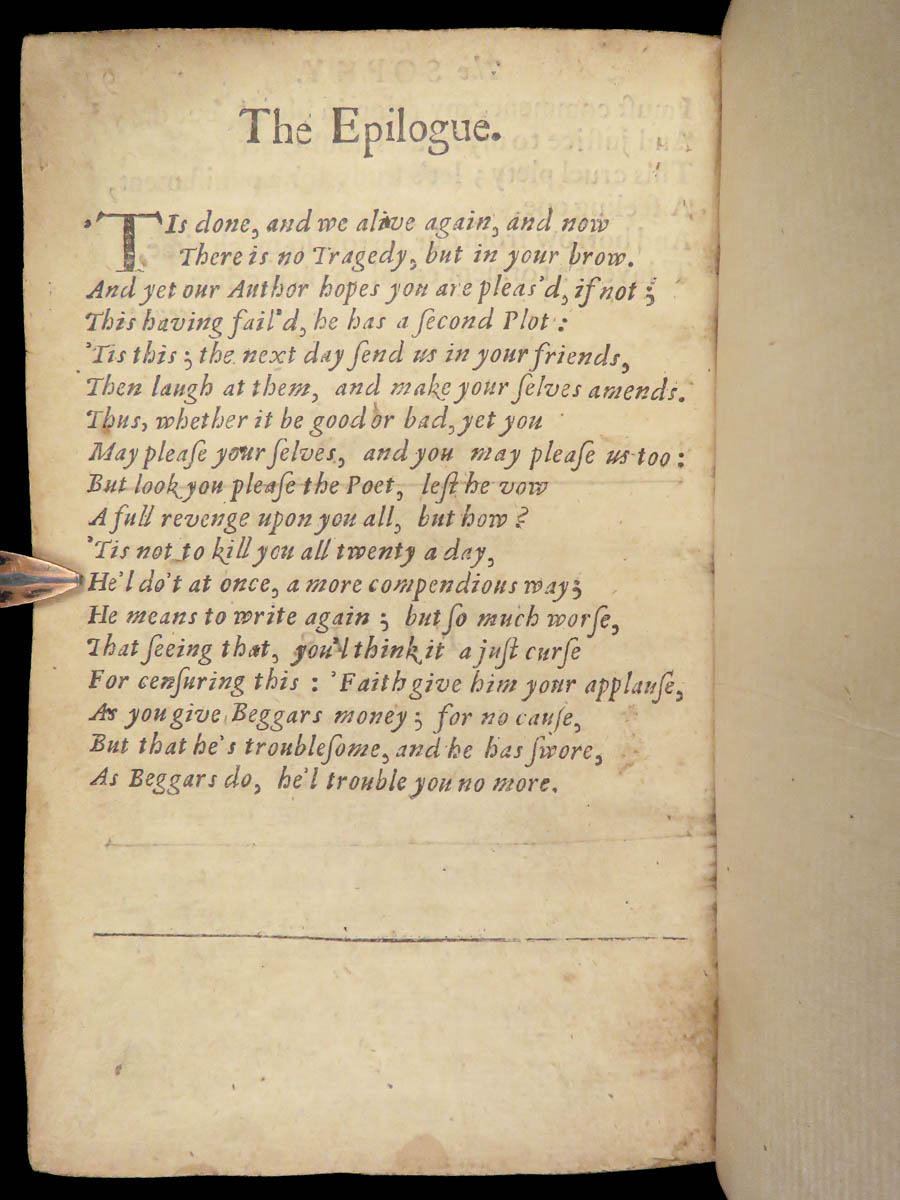 The Epilogue.
'TIs done, and we alive again, and now
There is no Tragedy, but in your brow.
And yet our Author hopes you are pleas'd, if not ;
This having fail'd, he has a ſecond Plot :
'Tis this ; the next day ſend us in your friends,
Then laugh at them, and make your ſelves amends.
Thus, whether it be good or bad, yet you
May pleaſe your ſelves, and you may pleaſe us too :
But look you pleaſe the Poet, leſt he vow
A full revenge upon you all, but how ?
'Tis not to kill you all twenty a day,
He'l do't at once, a more compendious way ;
He means to write again ; but ſo much worſe,
That ſeeing that, you'l think it a juſt curſe
For cenſuring this : 'Faith give him your applauſe,
As you give Beggars money ; for no cauſe,
But that he's troubleſome, and he has ſwore,
As Beggars do, he'l trouble you no more.